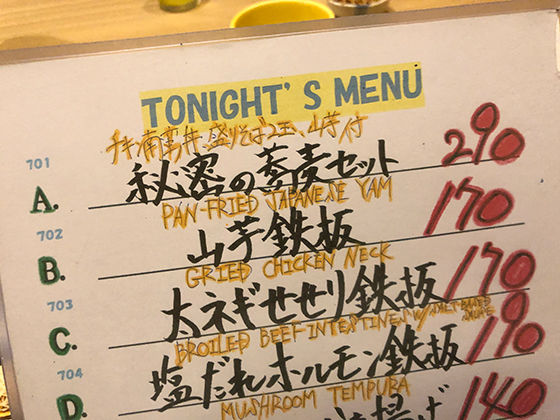 TONIGHT'S MENU
チキン南蛮丼、盛りそば2玉、山芋付
701
A. 秘密の蕎麦セット 290
PAN-FRIED JAPANESE YAM
702
B. 山芋鉄板 170
GRIED CHICKEN NECK
703
C. 大ネギせせり鉄板 170
BROILED BEEF INTESTINES W/
704
D. 塩だれホルモン鉄板 190
MUSHROOM TEMPURA
140